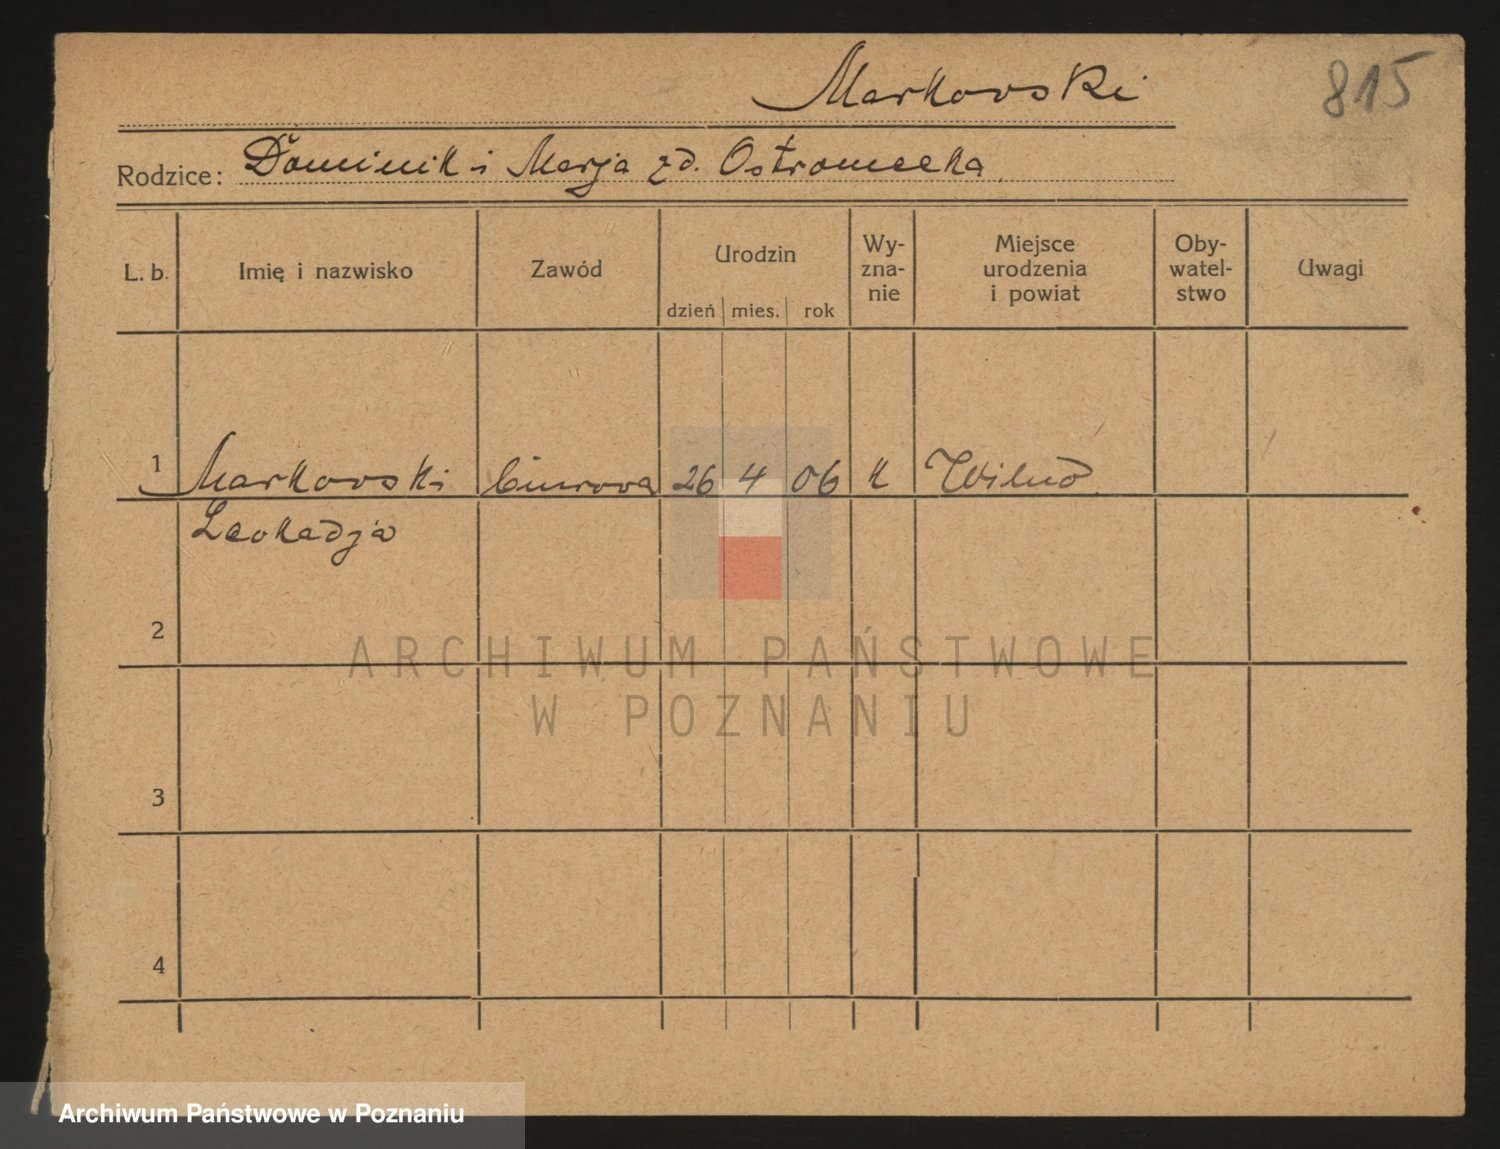 Markowski 815
Rodzice: Dominik i Marja zd. Ostromecka
L. b. Imię i nazwisko Zawód Urodzin dzień mies. rok Wy-zna-nie Miejsce urodzenia i powiat Oby-watel-stwo Uwagi
1 Markowski biurowa 26 4 06 k Wilno
Leokadja
2
ARCHIWUM PAŃSTWOWE
W POZNANIU
3
4
Archiwum Państwowe w Poznaniu